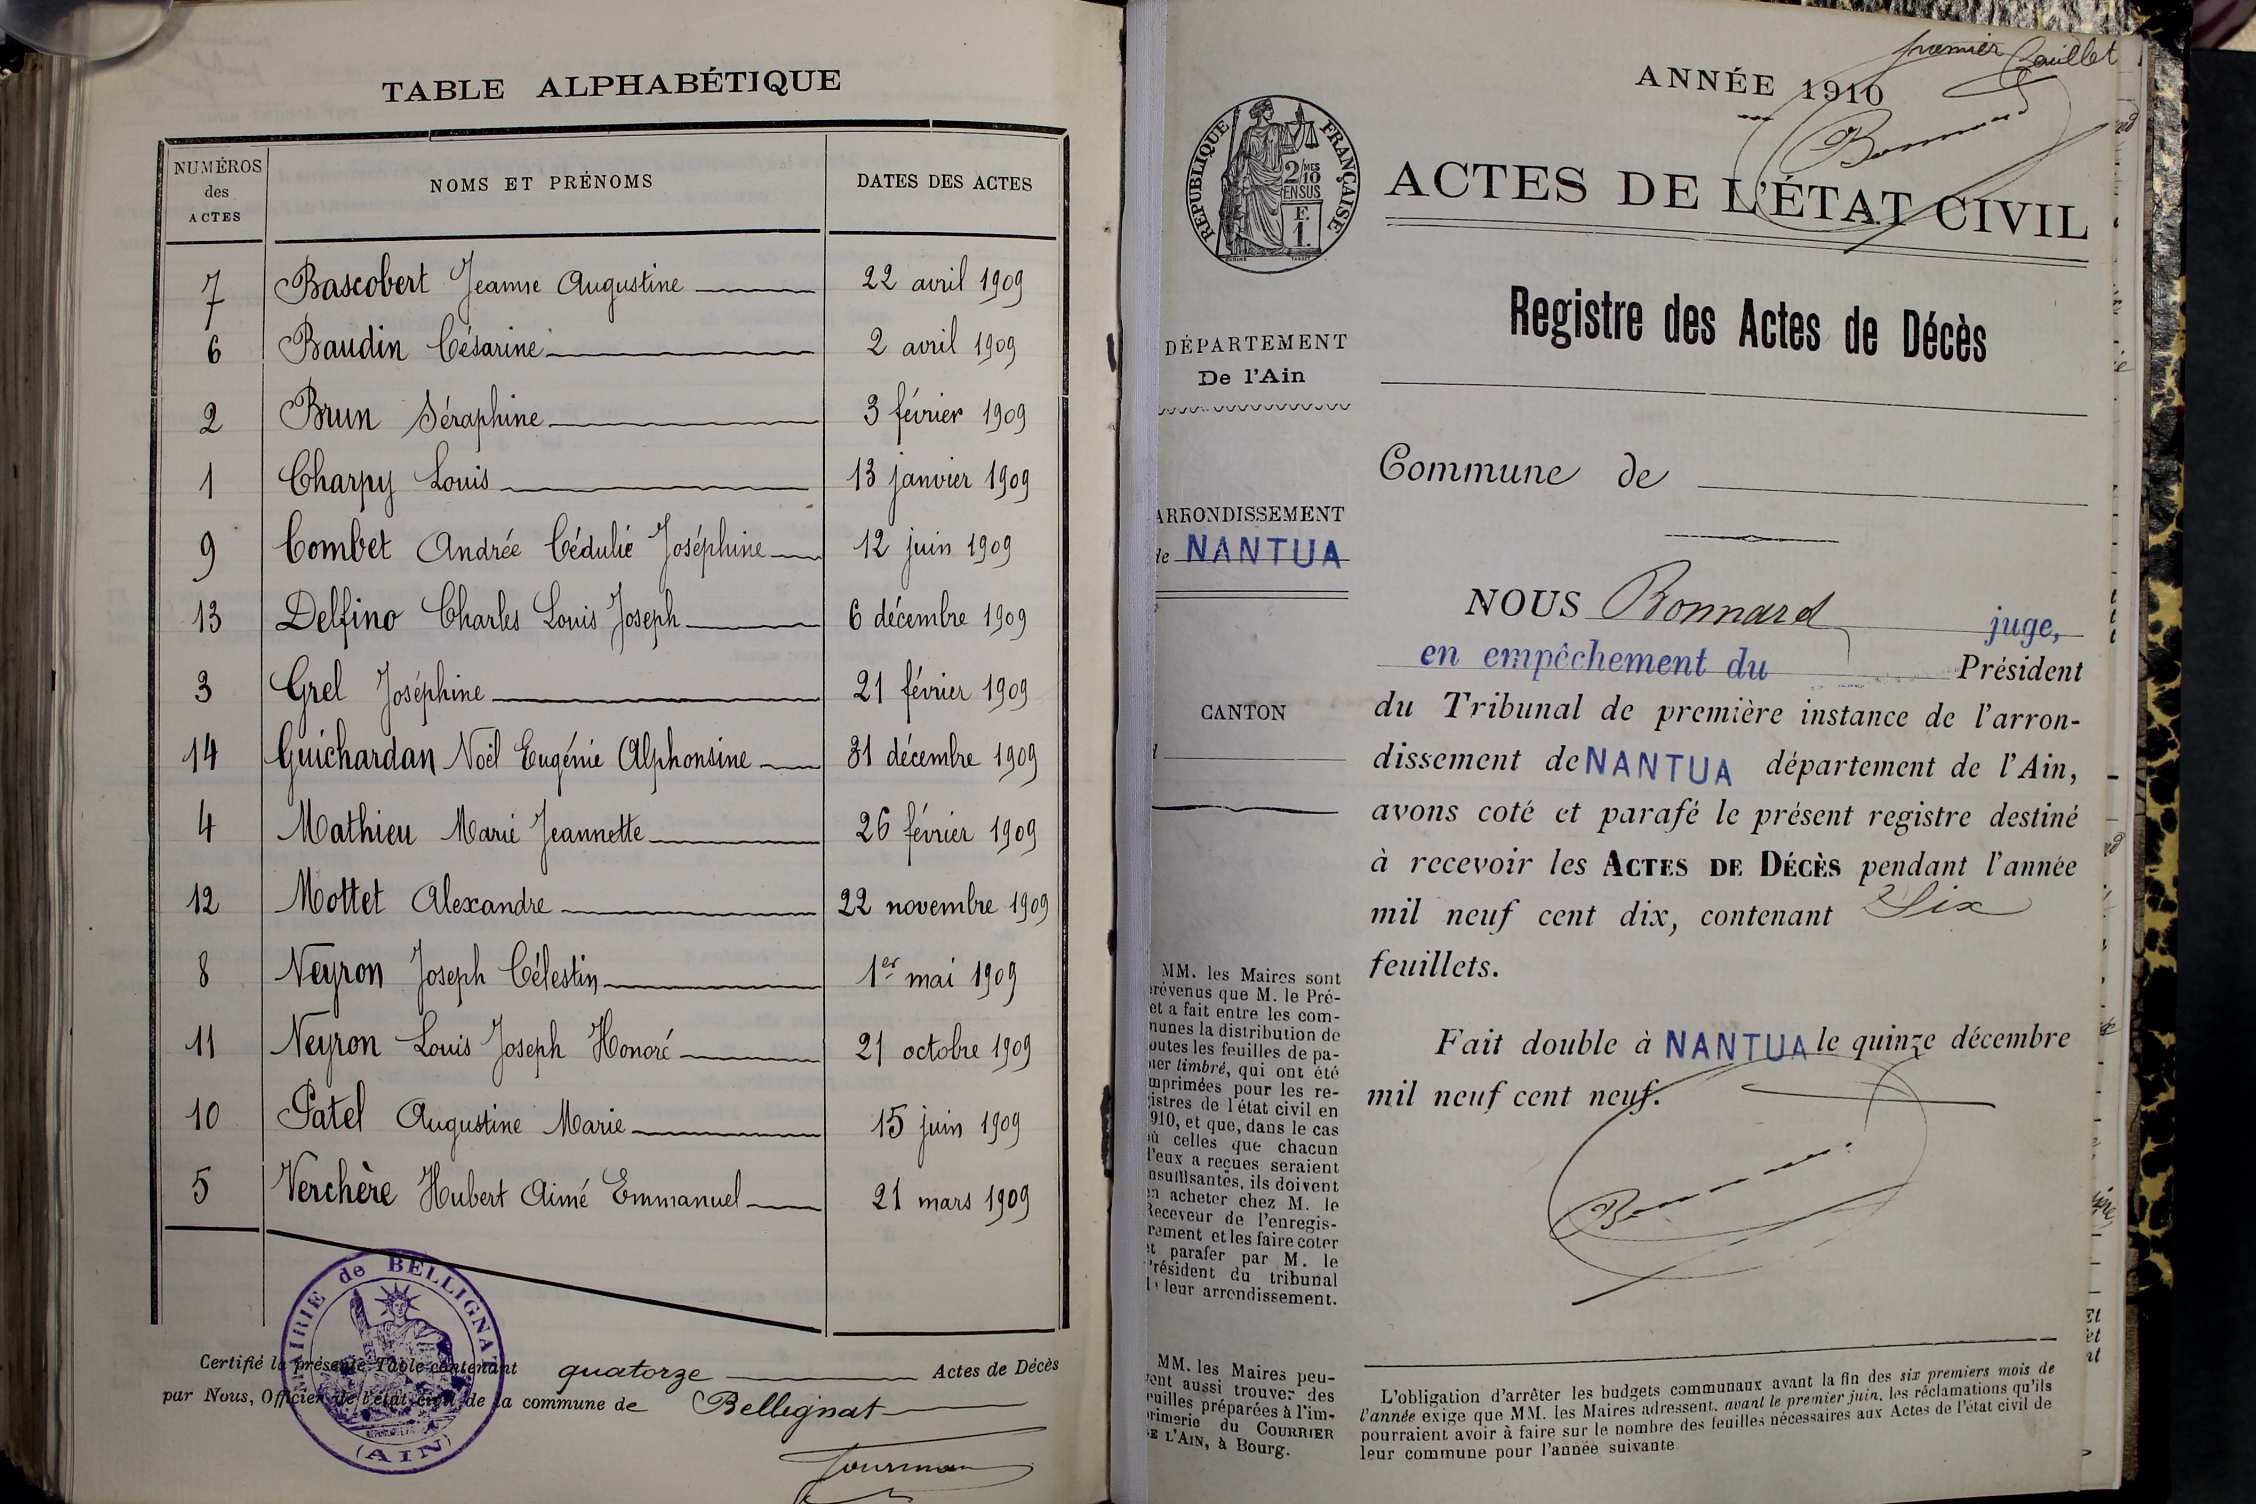 TABLE ALPHABÉTIQUE
NUMÉROS des ACTES
NOMS ET PRÉNOMS
DATES DES ACTES
7 Bascobert Jeanne Augustine 22 avril 1909
6 Baudin Césarine 2 avril 1909
2 Brun Séraphine 3 février 1909
1 Charpy Louis 13 janvier 1909
9 Combet Andrée Cédulie Joséphine 12 juin 1909
13 Delfino Charles Louis Joseph 6 décembre 1909
3 Grel Joséphine 21 février 1909
14 Guichardan Noël Eugénie Alphonsine 31 décembre 1909
4 Mathieu Marie Jeannette 26 février 1909
12 Mottet Alexandre 22 novembre 1909
8 Neyron Joseph Célestin 1er mai 1909
11 Neyron Louis Joseph Honoré 21 octobre 1909
10 Patel Augustine Marie 15 juin 1909
5 Verchère Hubert Aimé Emmanuel 21 mars 1909
Certifié la présente Table contenant quatorze Actes de Décès
par Nous, Officier de l'état civil de la commune de Bellignat
MAIRIE de BELLIGNAT
(AIN)
premier feuillet
ANNÉE 1910
RÉPUBLIQUE FRANÇAISE
2/10 MES
EN SUS
F.
1.
ACTES DE L'ÉTAT CIVIL
Registre des Actes de Décès
DÉPARTEMENT
De l'Ain
ARRONDISSEMENT
de NANTUA
CANTON
d
MM. les Maires sont
prévenus que M. le Pré-
fet a fait entre les com-
munes la distribution de
toutes les feuilles de pa-
pier timbré, qui ont été
imprimées pour les re-
gistres de l'état civil en
1910, et que, dans le cas
où celles que chacun
d'eux a reçues seraient
insuffisantes, ils doivent
en acheter chez M. le
Receveur de l'enregis-
trement et les faire coter
et parafer par M. le
Président du tribunal
d' leur arrondissement.
MM. les Maires peu-
vent aussi trouver des
feuilles préparées à l'im-
primerie du COURRIER
DE L'AIN, à Bourg.
Commune de
NOUS Bonnard juge,
en empêchement du Président
du Tribunal de première instance de l'arron-
dissement de NANTUA département de l'Ain,
avons coté et parafé le présent registre destiné
à recevoir les ACTES DE DÉCÈS pendant l'année
mil neuf cent dix, contenant Six
feuillets.
Fait double à NANTUA le quinze décembre
mil neuf cent neuf.
L'obligation d'arrêter les budgets communaux avant la fin des six premiers mois de
l'année exige que MM. les Maires adressent, avant le premier juin, les réclamations qu'ils
pourraient avoir à faire sur le nombre des feuilles nécessaires aux Actes de l'état civil de
leur commune pour l'année suivante